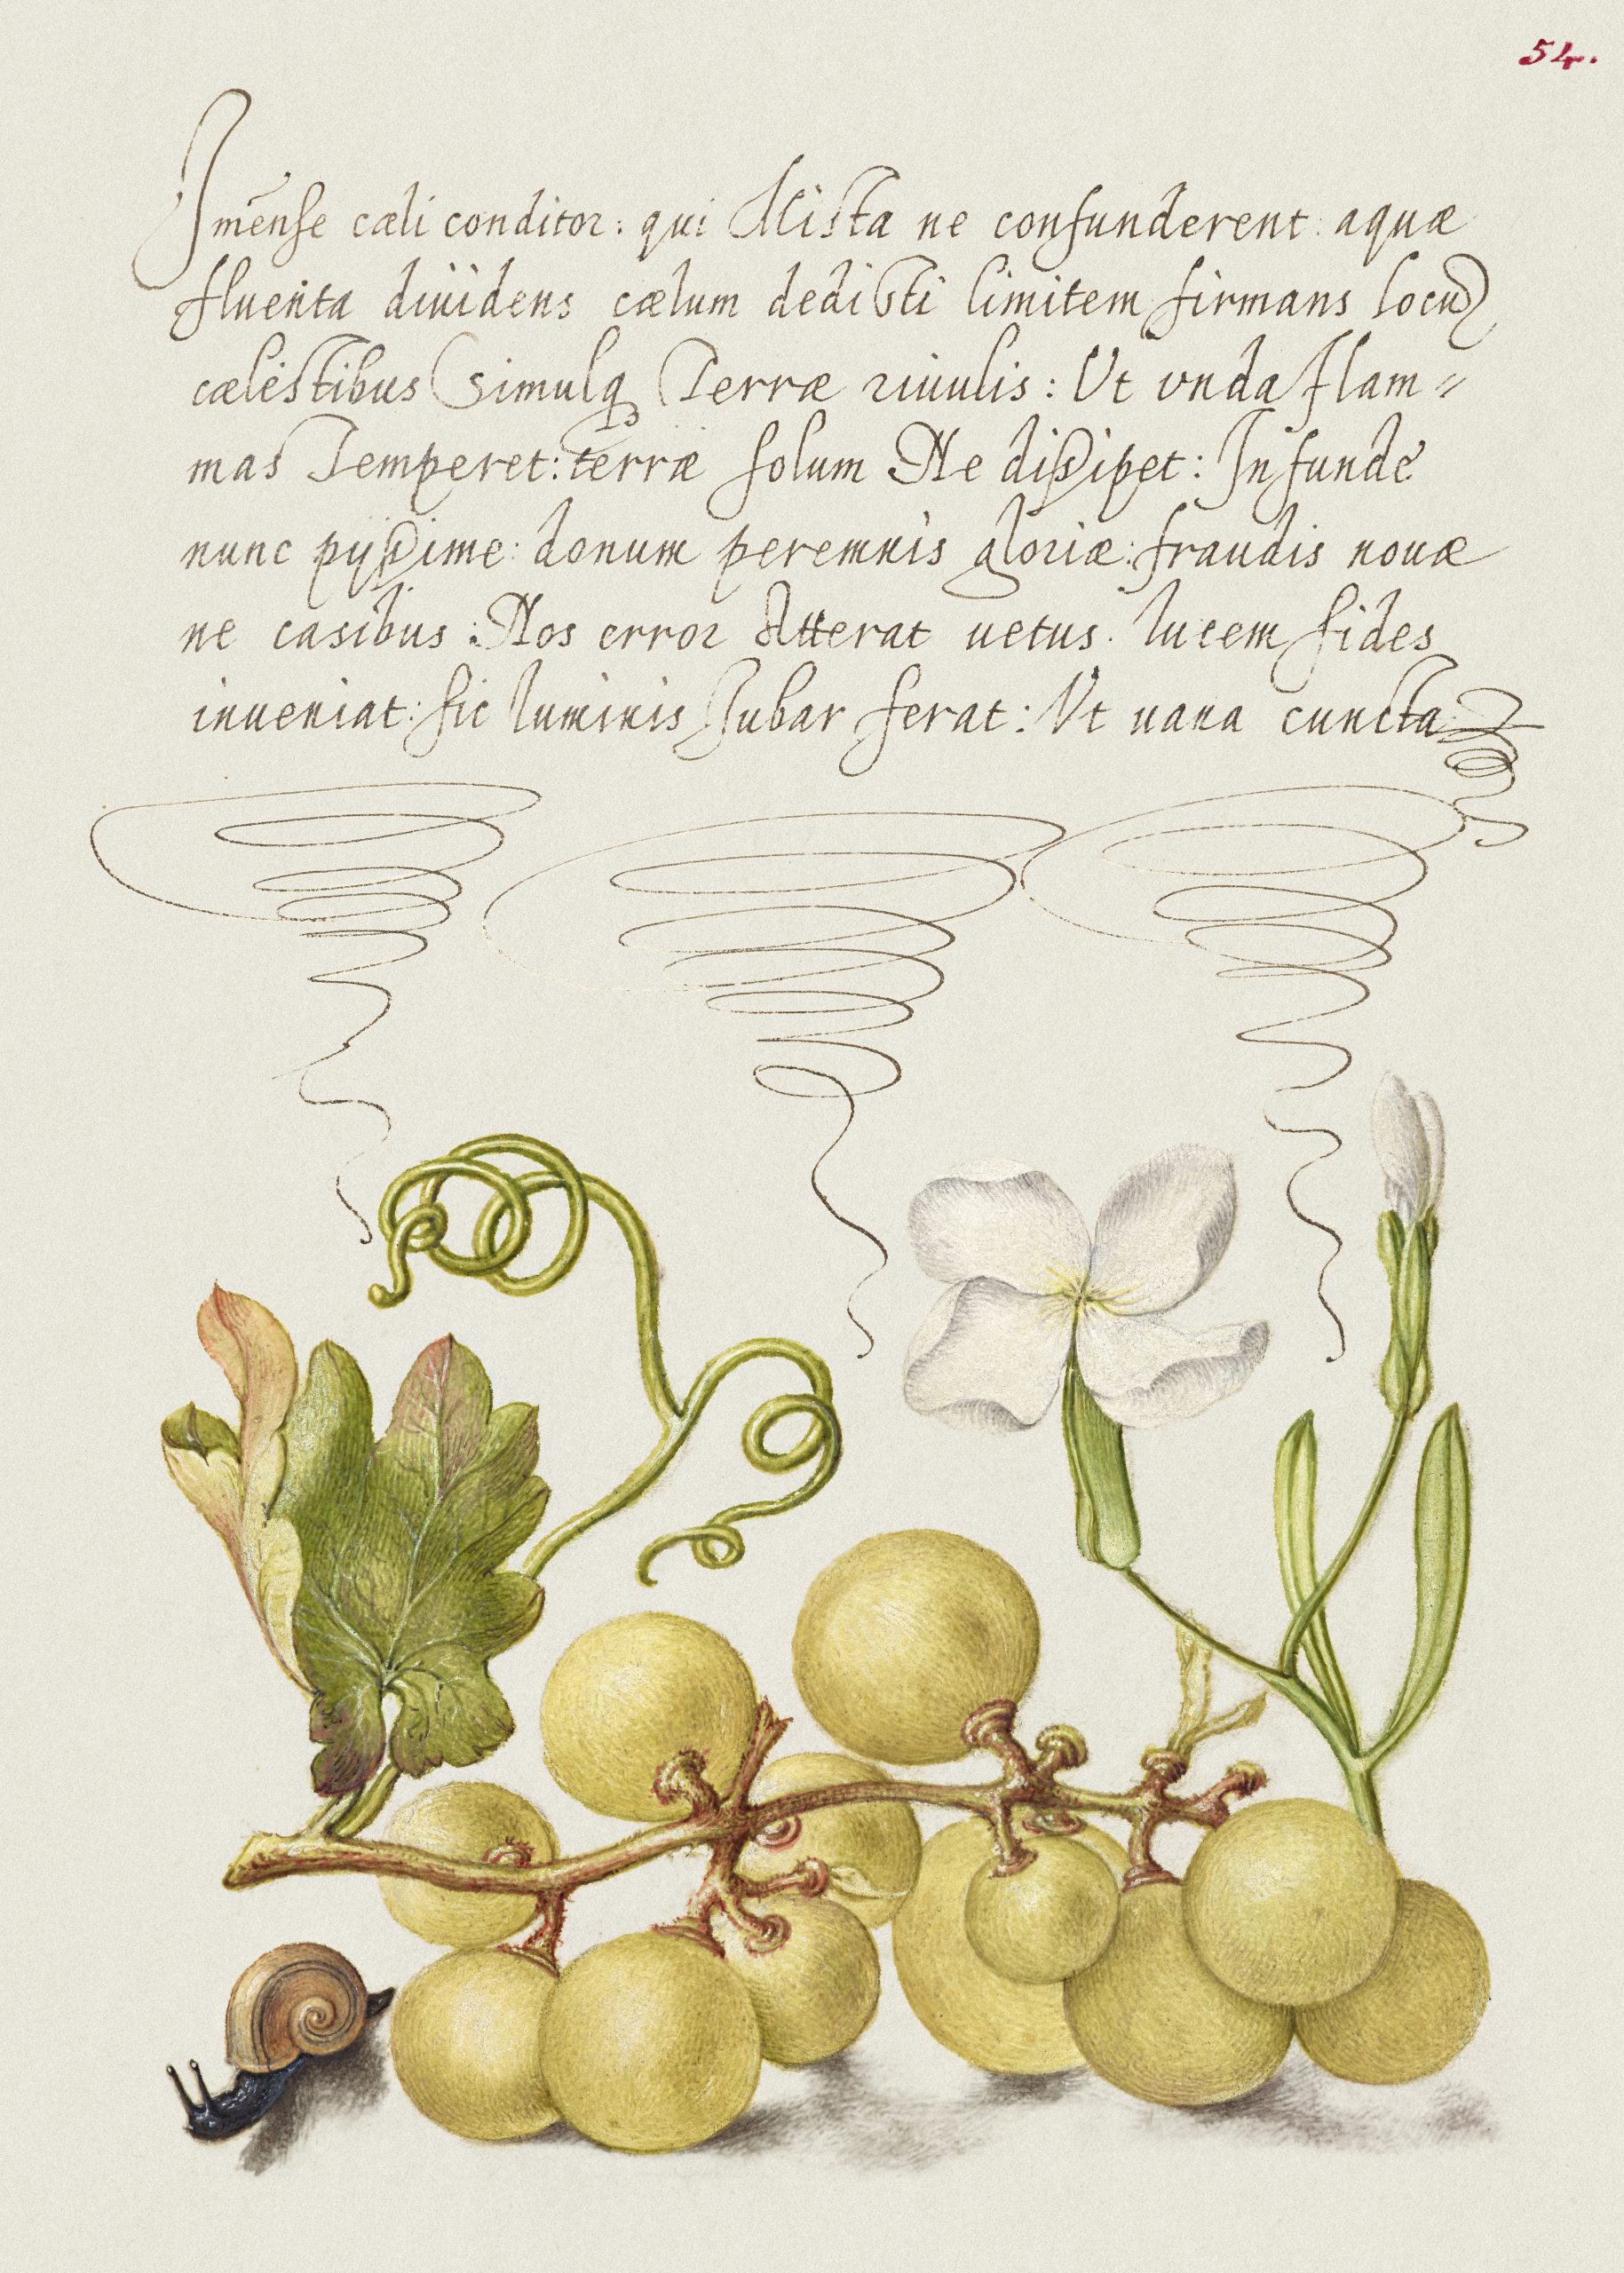 54.
Jmēnse cæli conditor: qui Mista ne confunderent. aquæ
fluenta diuidens cælum dedisti limitem firmans locũ
cælestibus Simulqȝ Terræ riuulis: Vt vnda flam=
mas Temperet: terræ solum Ne dissipet: Infunde
nunc pijssime: donum peremnis gloriæ: fraudis nouæ
ne casibus: Nos error Atterat uetus. lucem fides
inueniat: sic luminis Jubar ferat: Vt uana cuncta